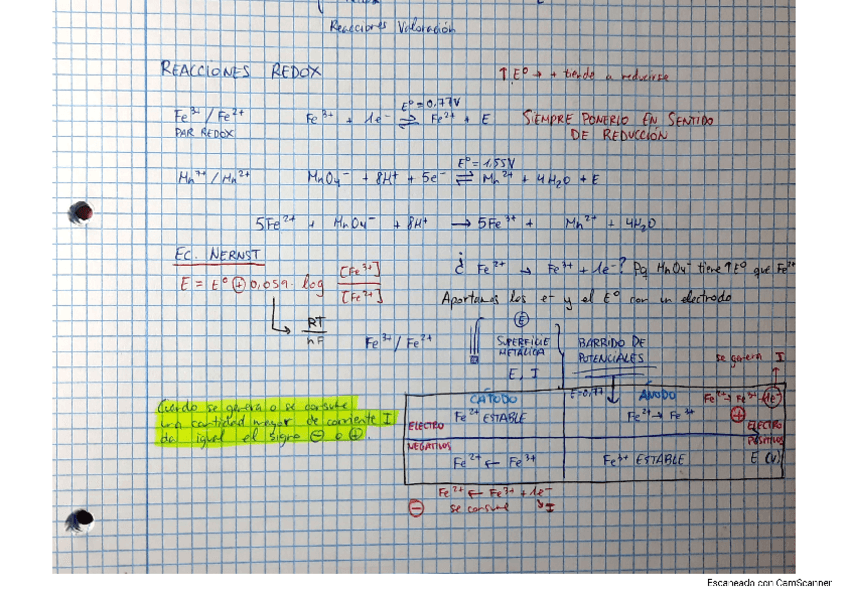 Reacciones Valoración
REACCIONES REDOX
↑E° → + tiende a reducirse
Fe³⁺/Fe²⁺
PAR REDOX
Fe³⁺ + 1e⁻ ⇌ Fe²⁺ + E
E° = 0,77V
SIEMPRE PONERLO EN SENTIDO
DE REDUCCIÓN
Mn⁷⁺/Mn²⁺
MnO₄⁻ + 8H⁺ + 5e⁻ ⇌ Mn²⁺ + 4H₂O + E
E° = 1,55V
5Fe²⁺ + MnO₄⁻ + 8H⁺ → 5Fe³⁺ + Mn²⁺ + 4H₂O
EC. NERNST
E = E° ⊕ 0,059 · log [Fe³⁺]/[Fe²⁺]
RT/nF
Fe³⁺/Fe²⁺
¿ Fe²⁺ → Fe³⁺ + 1e⁻? Pq MnO₄⁻ tiene ↑E° que Fe²⁺
Aportamos los e⁻ y el E° con un electrodo
E
SUPERFICIE
METÁLICA
E, I
BARRIDO DE
POTENCIALES
se genera I
Cuando se genera o se consume
una cantidad mayor de corriente I
da igual el signo ⊖ o ⊕.
CÁTODO
Fe²⁺ ESTABLE
ELECTRO
NEGATIVOS
Fe²⁺ ← Fe³⁺
E=0,77
ÁNODO
Fe²⁺ → Fe³⁺
Fe²⁺ → Fe³⁺ + 1e⁻
⊕
ELECTRO
POSITIVOS
Fe³⁺ ESTABLE
E (V)
Fe²⁺ ← Fe³⁺ + 1e⁻
⊖ se consume I
Escaneado con CamScanner